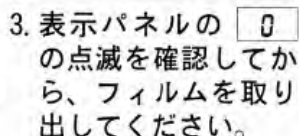 3. 表示パネルの 0
の点滅を確認してか
ら、フィルムを取り
出してください。